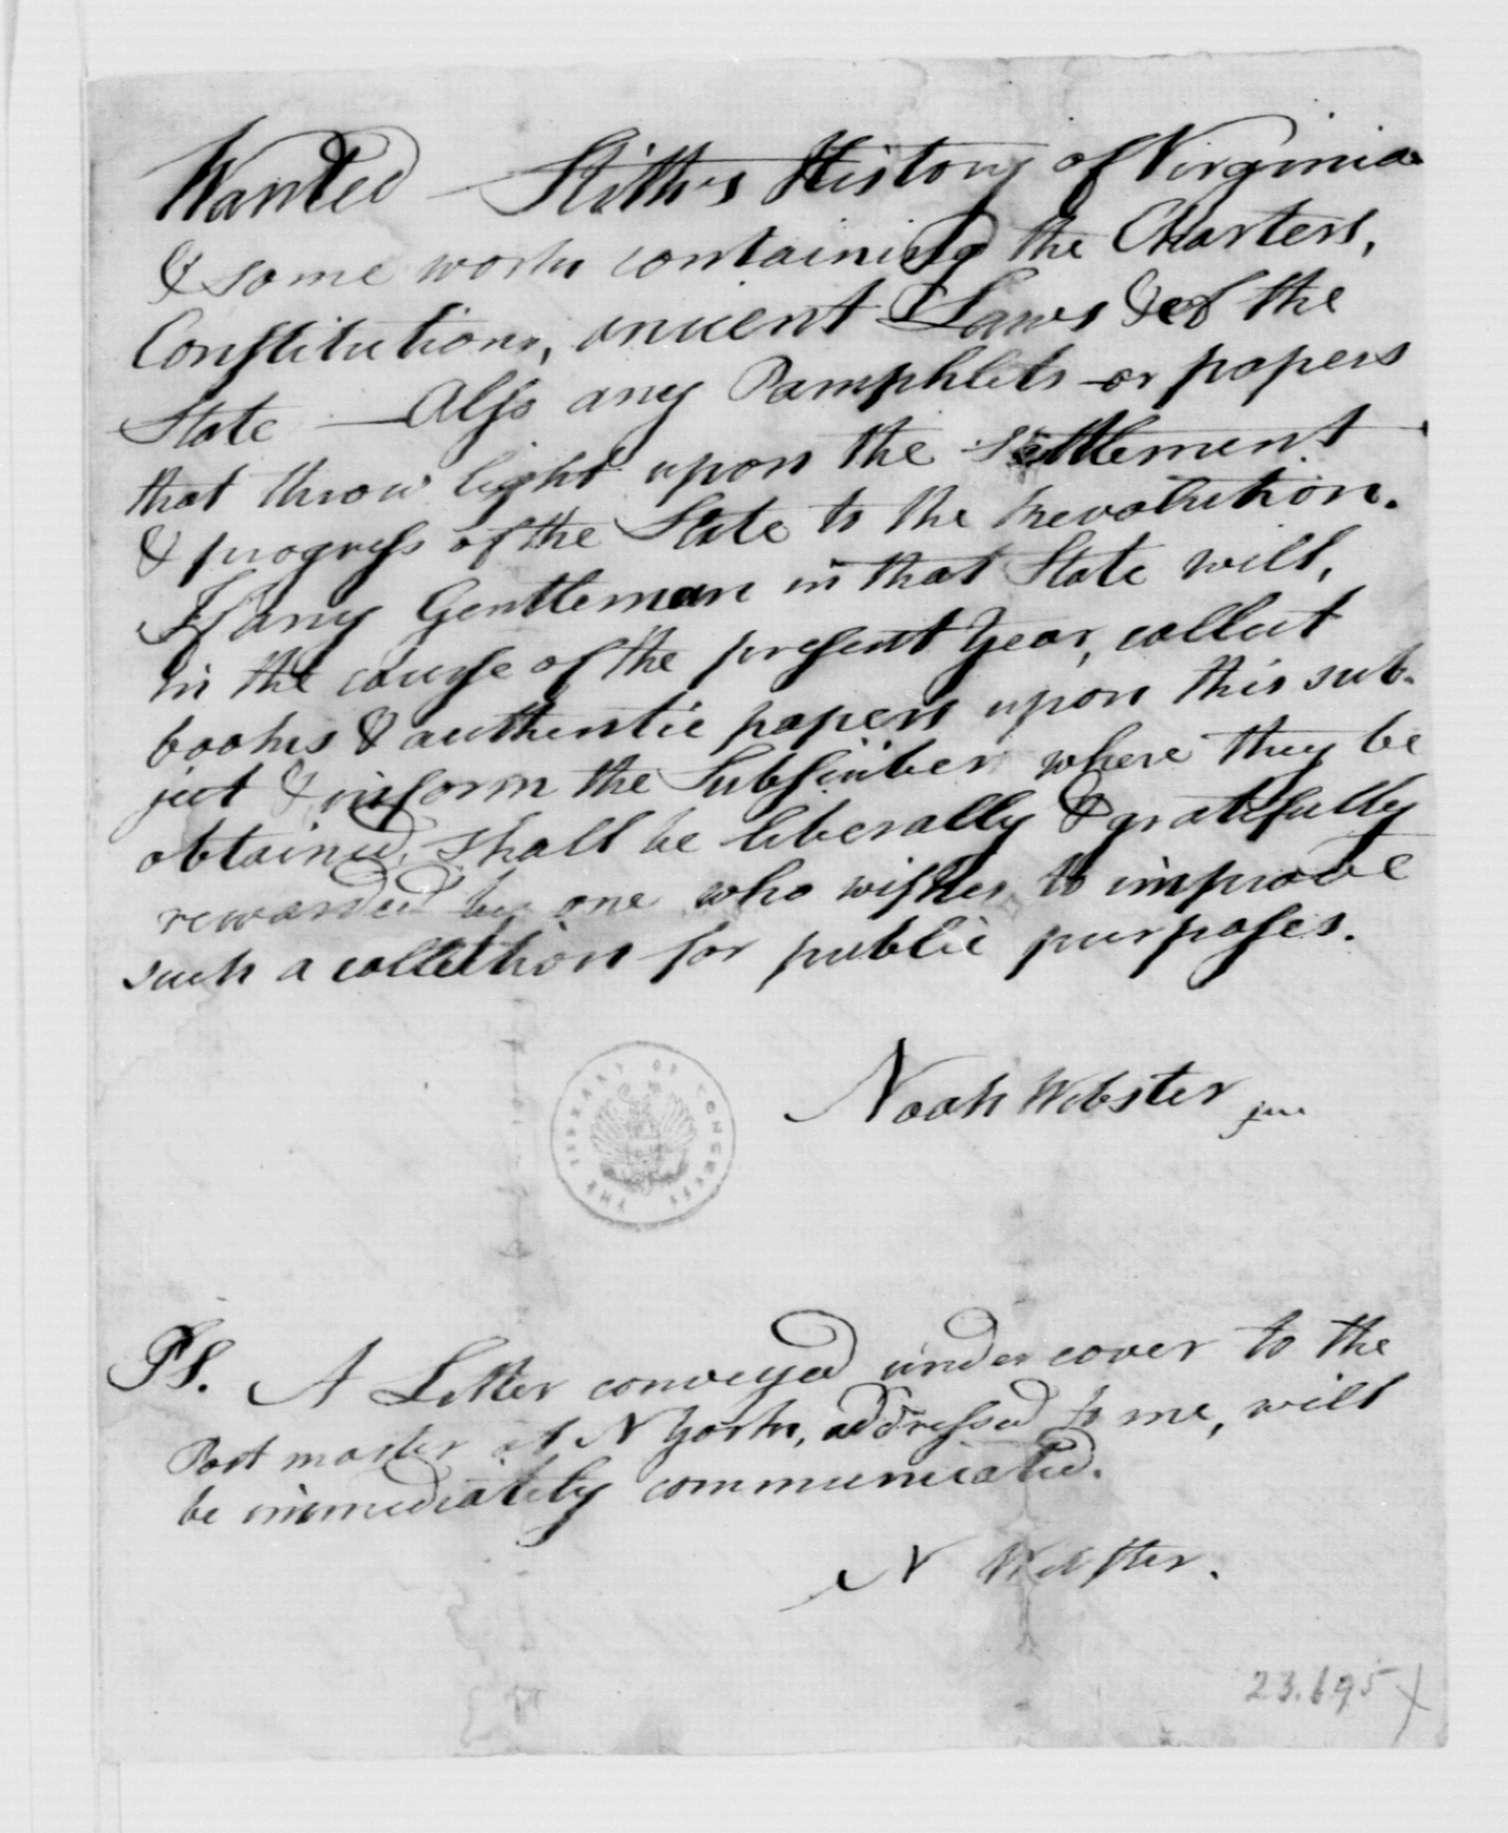 Wanted — Stith's History of Virginia
& some work containing the Charters,
Constitutions, ancient Laws &c of the
State — Also any Pamphlets or papers
that throw light upon the settlement
& progress of the State to the revolution.
If any Gentleman in that State will,
in the course of the present year, collect
books & authentic papers upon this sub-
ject & inform the Subscriber where they be
obtained, shall be liberally & gratefully
rewarded by one who wishes to improve
such a collection for public purposes.
Noah Webster jun
THE LIBRARY OF CONGRESS
PS. A Letter conveyed under cover to the
Post master at N York, addressed to me, will
be immediately communicated.
N Webster.
23.695